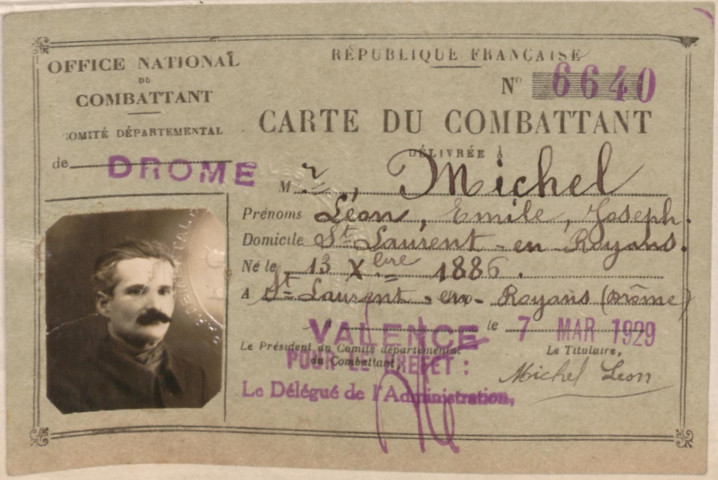 OFFICE NATIONAL
DU
COMBATTANT
COMITÉ DÉPARTEMENTAL
de DROME
RÉPUBLIQUE FRANÇAISE
N° 6640
CARTE DU COMBATTANT
DÉLIVRÉE À
M r, Michel
Prénoms Léon, Emile, Joseph.
Domicile St Laurent-en Royans.
Né le 13 Xbre 1886.
A St Laurent-en-Royans (Drôme)
VALENCE le 7 MAR 1929
Le Président du Comité départemental
du Combattant,
POUR LE PREFET :
Le Délégué de l'Administration,
Le Titulaire,
Michel Leon